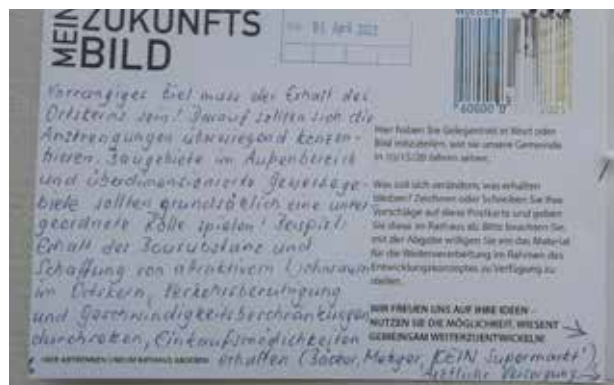 MEIN ZUKUNFTS
BILD
01. April 2022
Vorrangiges Ziel muss der Erhalt des
Ortskerns sein! Darauf sollten sich die
Anstrengungen überwiegend konzen-
trieren. Baugebiete im Außenbereich
und überdimensionierte Gewerbege-
biete sollten grundsätzlich eine unter
geordnete Rolle spielen! Beispiel:
Erhalt der Bausubstanz und
Schaffung von attraktivem Wohnraum
im Ortskern, Verkehrsberuhigung
und Geschwindigkeitsbeschränkungen
durchsetzen, Einkaufsmöglichkeiten
erhalten (Bäcker, Metzger, KEIN Supermarkt!)
ärztliche Versorgung
HIER ABTRENNEN UND IM RATHAUS ABGEBEN
WIESENT
Hier haben Sie Gelegenheit in Wort oder
Bild mitzuteilen, wie sie unsere Gemeinde
in 10/15/20 Jahren sehen.
Was soll sich verändern, was erhalten
bleiben? Zeichnen oder Schreiben Sie Ihre
Vorschläge auf diese Postkarte und geben
Sie diese im Rathaus ab. Bitte beachten Sie,
mit der Abgabe willigen Sie ein das Material
für die Weiterverarbeitung im Rahmen des
Entwicklungskonzeptes zu Verfügung zu
stellen.
WIR FREUEN UNS AUF IHRE IDEEN –
NUTZEN SIE DIE MÖGLICHKEIT, WIESENT
GEMEINSAM WEITERZUENTWICKELN!